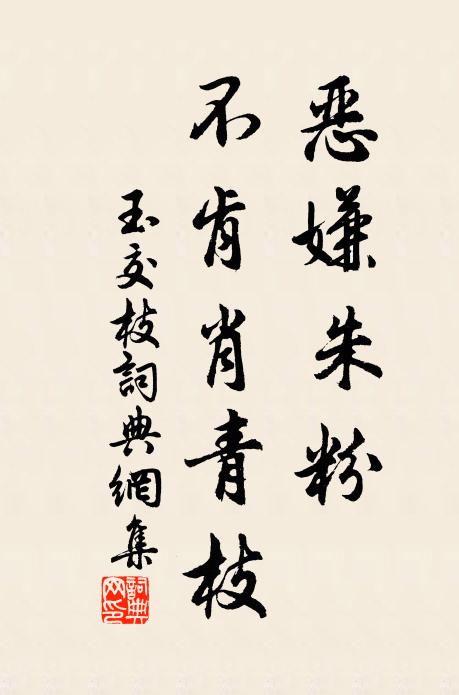 惡嫌朱粉
不肯肖青枝
玉交枝詞典網集
詞典網印